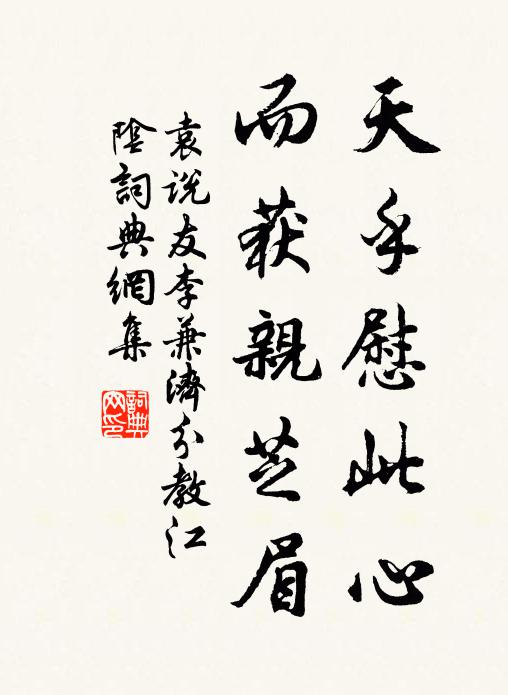 天乎慰此心
而获親芝眉
袁说友李兼濟分教江
陰詞典網集
詞典网印